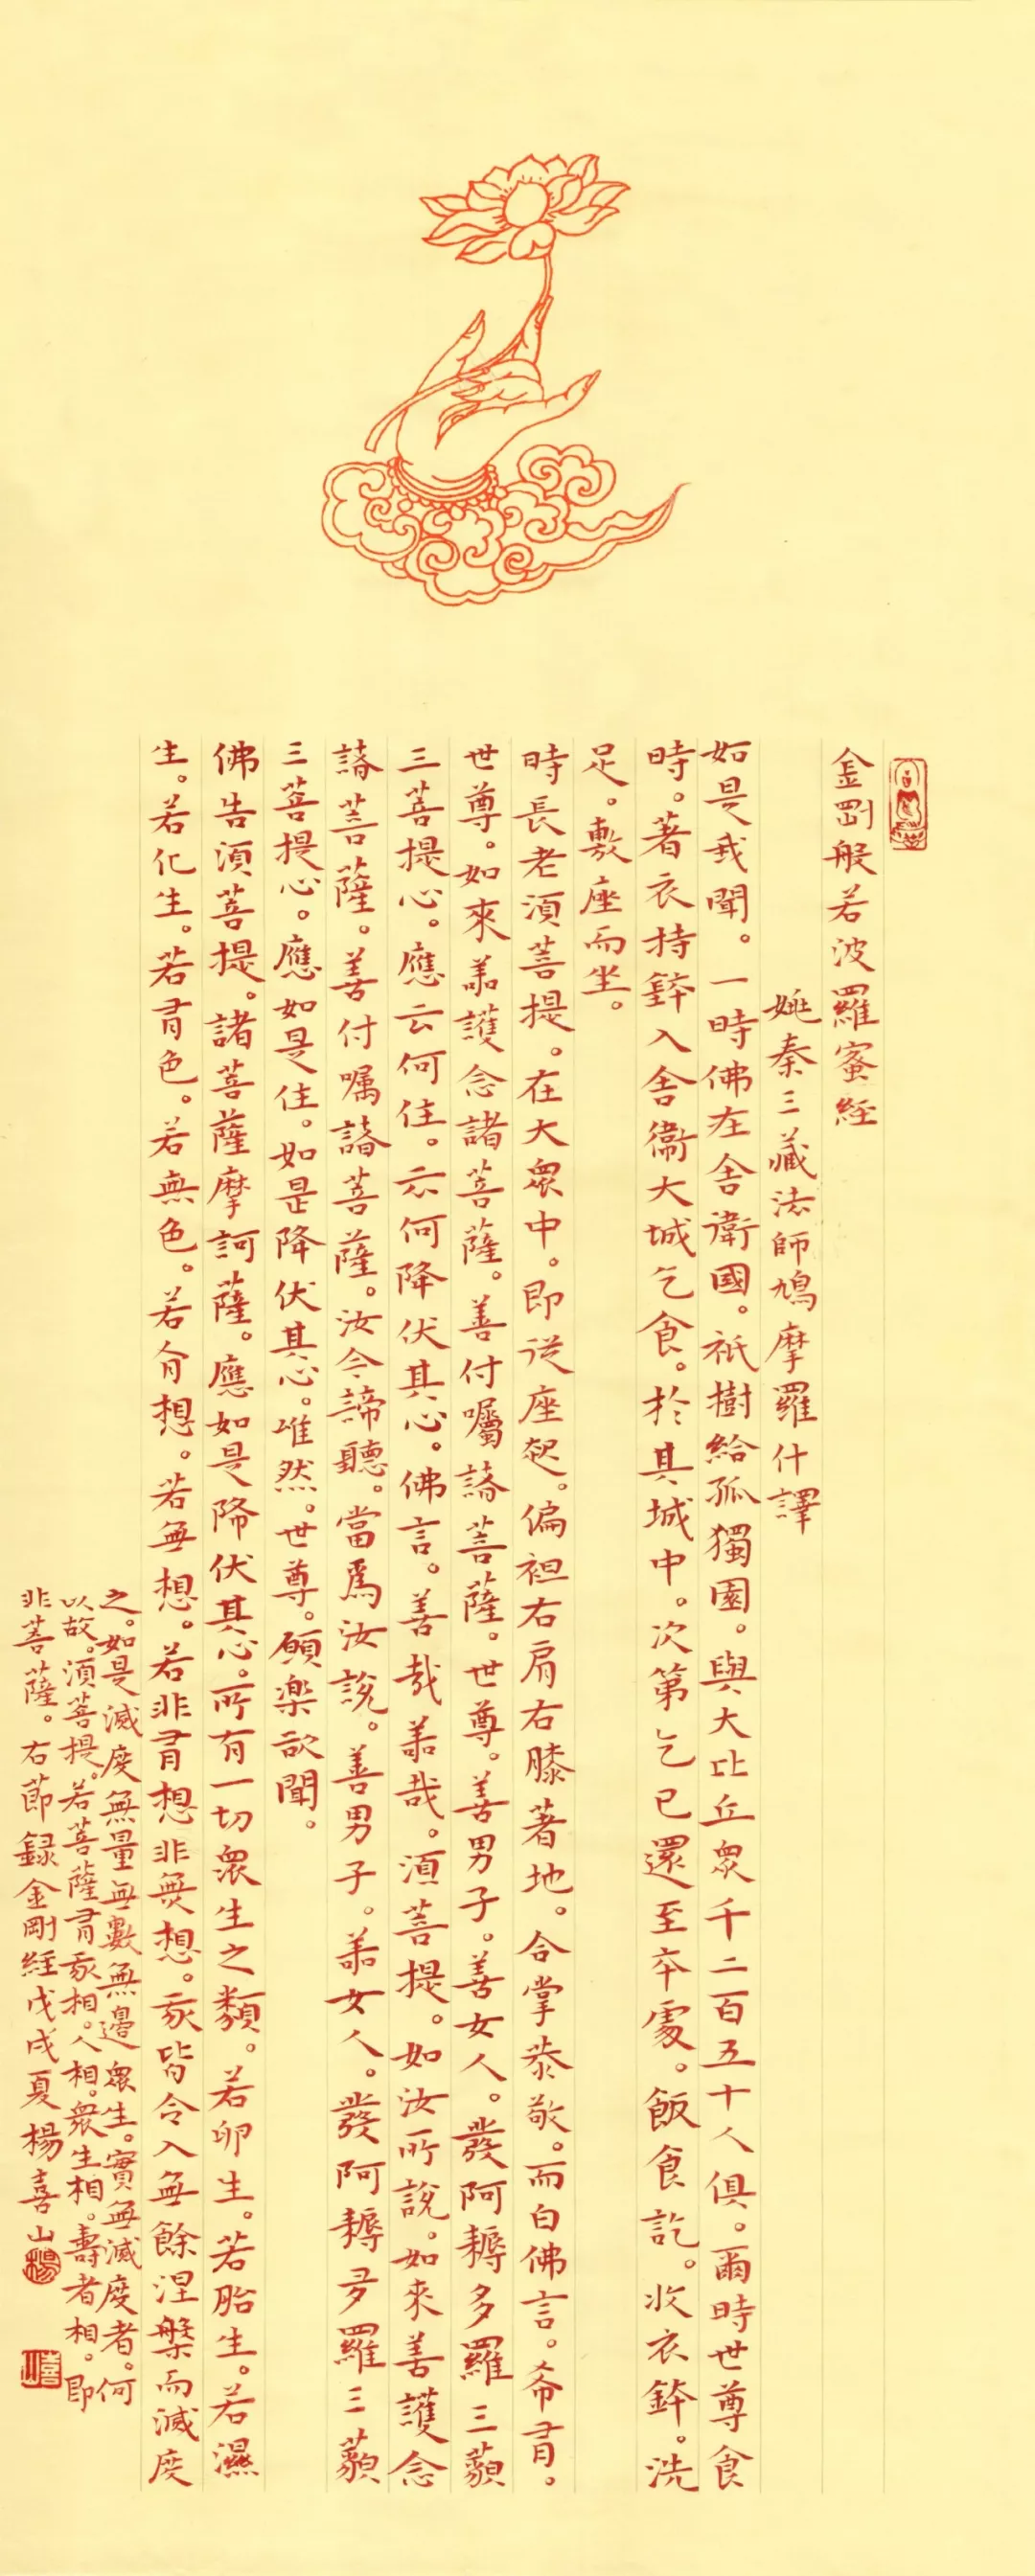 金剛般若波羅蜜経
姚秦三藏法師鳩摩羅什譯
如是我聞。一時佛在舍衛國。祇樹給孤獨園。與大比丘眾千二百五十人俱。爾時世尊食
時。著衣持鉢入舍衛大城乞食。於其城中。次第乞已還至本處。飯食訖。收衣鉢。洗
足。敷座而坐。
時長老須菩提。在大眾中。即從座起。偏袒右肩右膝著地。合掌恭敬。而白佛言。希有。
世尊。如來善護念諸菩薩。善付囑諸菩薩。世尊。善男子。善女人。發阿耨多羅三藐
三菩提心。應云何住。云何降伏其心。佛言。善哉善哉。須菩提。如汝所說。如來善護念
諸菩薩。善付嘱諸菩薩。汝今諦聽。當爲汝說。善男子。善女人。發阿耨多羅三藐
三菩提心。應如是住。如是降伏其心。唯然。世尊。願樂欲聞。
佛告須菩提。諸菩薩摩訶薩。應如是降伏其心。所有一切眾生之類。若卵生。若胎生。若濕
生。若化生。若有色。若無色。若有想。若無想。若非有想非無想。我皆令入無餘涅槃而滅度
之。如是滅度無量無數無邊眾生。實無滅度者。何
以故。須菩提。若菩薩有我相。人相。眾生相。壽者相。即
非菩薩。右節録金剛経戊戌夏楊喜山
楊